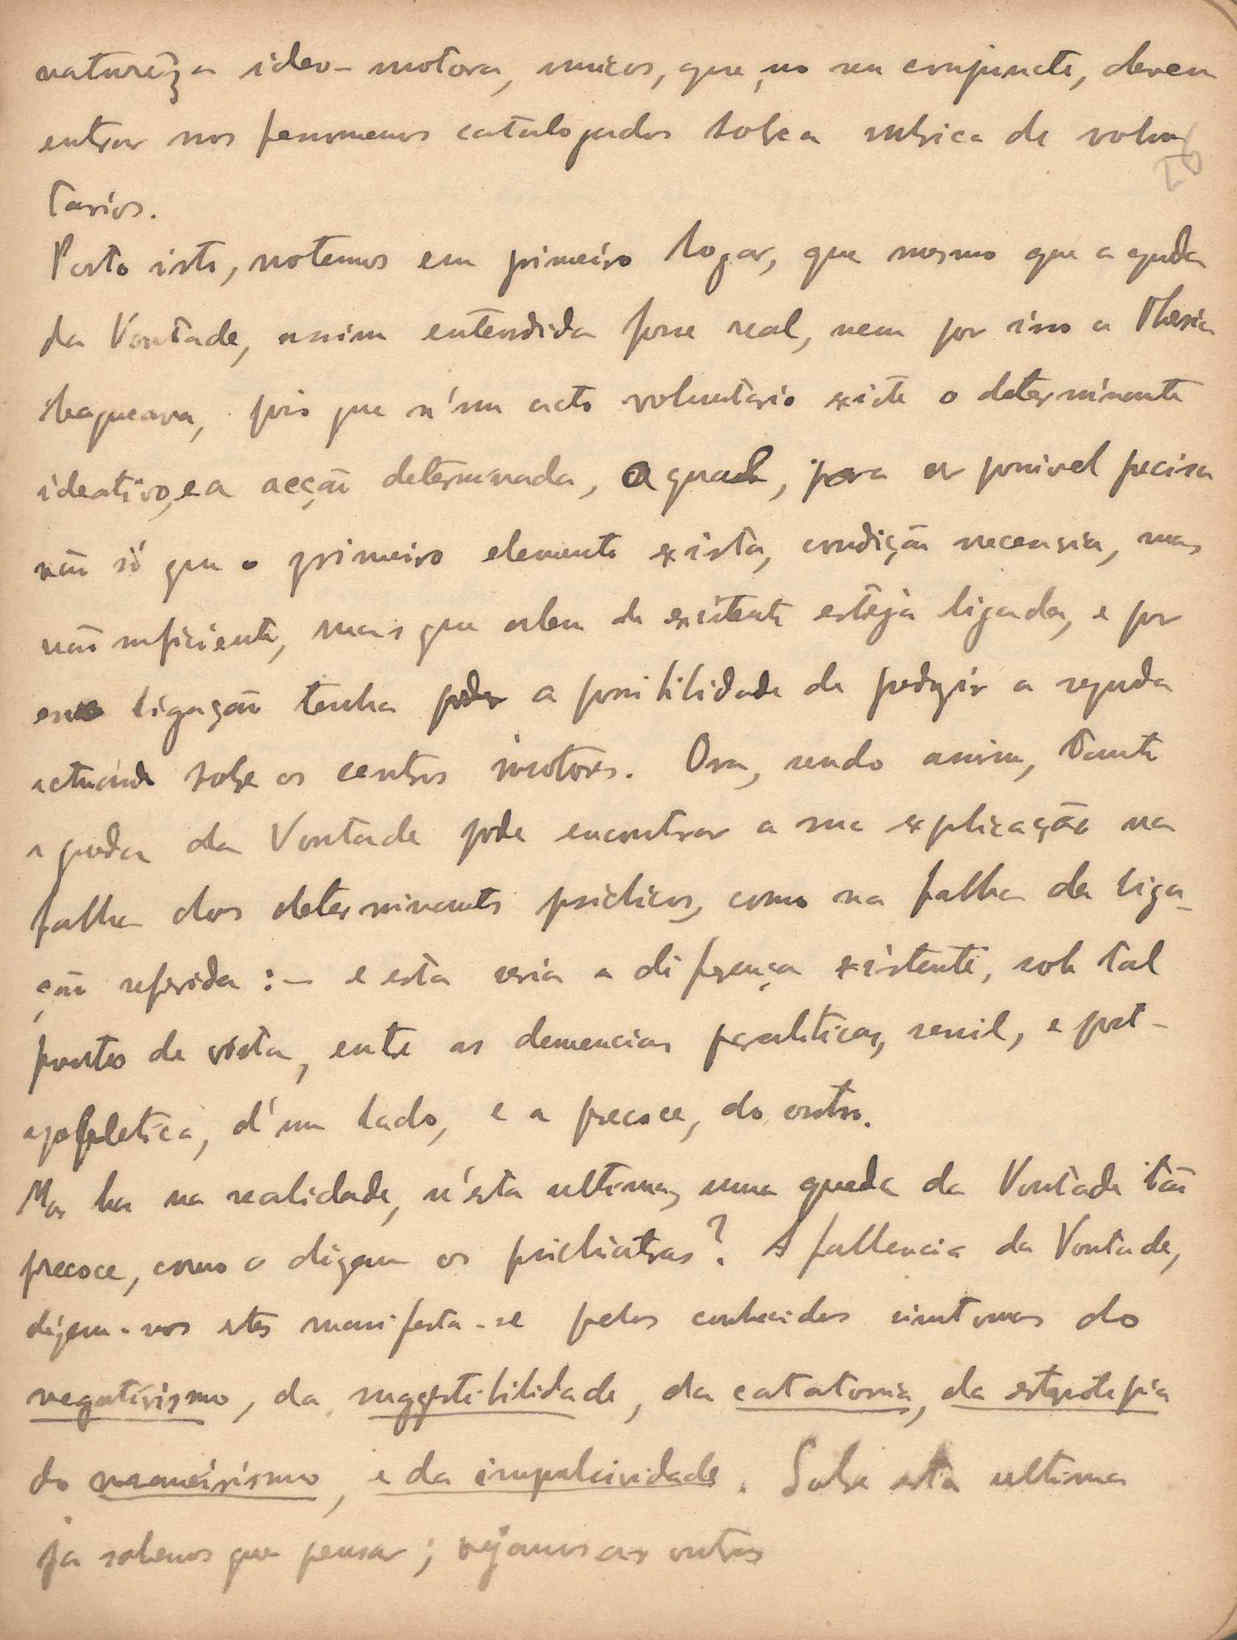 natureza ideo-motora, unicos, que, no seu conjuncto, devem
entrar nos fenomenos catalogados sobre a rubrica de volun
tarios.
Posto isto, notemos em primeiro logar, que mesmo que a queda
da Vontade, assim entendida fosse real, nem por isso a Thesia
baqueava, pois que n'um acto voluntario existe o determinante
ideativo, e a acção determinada, a qual, para ser possivel precisa
não só que o primeiro elemento exista, condição necessaria, mas
não sufficiente, mas que alem de existente esteja ligada, e por
essa ligação tenha poder a possibilidade de produzir a segunda
actuando sobre os centros motores. Ora, sendo assim, tanto
a queda da Vontade pode encontrar a sua explicação na
falha dos determinantes psichicos, como na falha da liga-
ção referida :— e esta seria a diferença existente, sob tal
ponto de vista, entre as demencias paraliticas, senil, e post-
apopletica, d'um lado, e a precoce, do outro.
Mas ha na realidade, n'esta ultima, uma queda da Vontade tão
precoce, como o dizem os psichiatras? A fallencia da Vontade,
dizem-nos estes manifesta-se pelos conhecidos sintomas do
negativismo, da suggestibilidade, da catatonia, da estereotipia
do maneirismo, e da impulsividade. Sobre esta ultima
ja sabemos que pensar; vejamos as outras